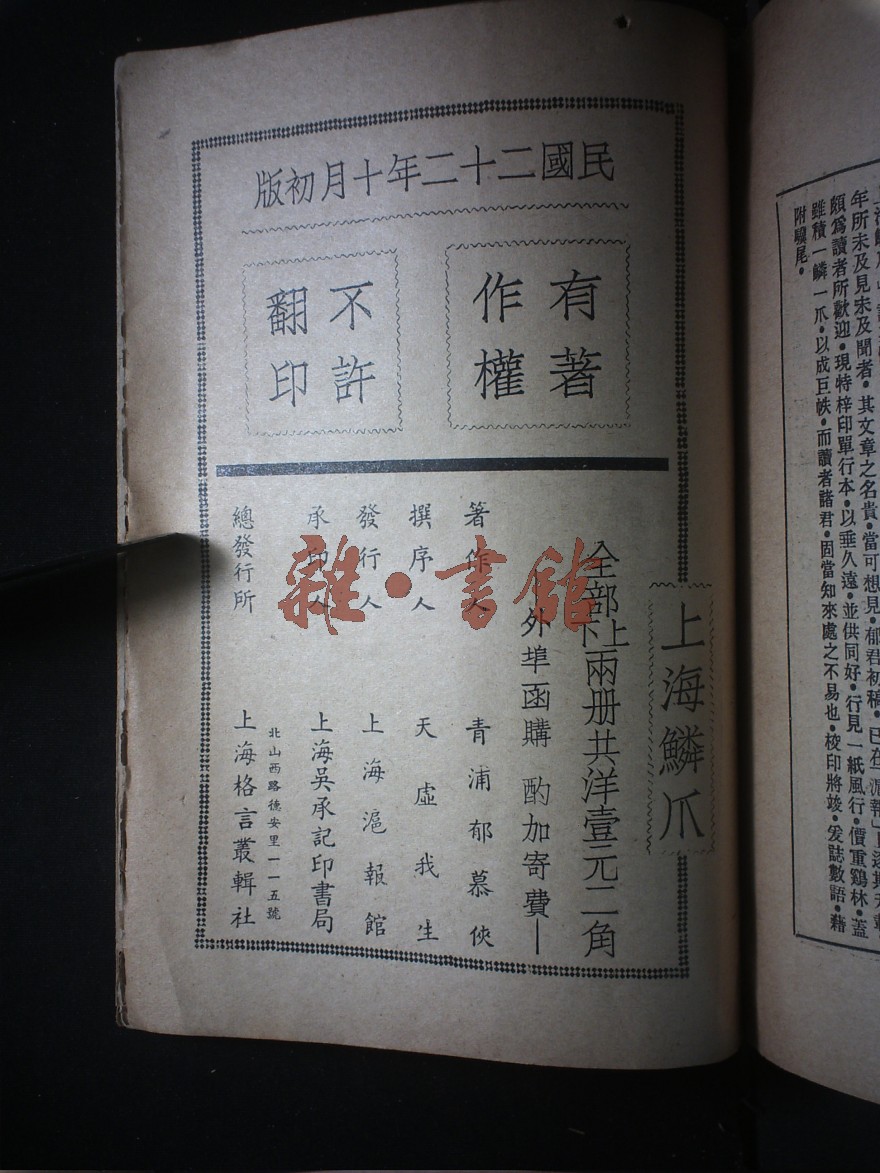 民國二十二年十月初版
有著
作權
不許
翻印
上海鱗爪
全部上下兩册共洋壹元二角
外埠函購 酌加寄費—
著作人 青浦郁慕俠
撰序人 天虛我生
發行人 上海滬報館
承印人 上海吳承記印書局
北山西路德安里一一五號
總發行所 上海格言叢輯社
雜·書館
年所未及見未及聞者•其文章之名貴•當可想見•郁君初稿•已在
頗爲讀者所歡迎•現特梓印單行本•以垂久遠•並供同好•行見一紙風行•價重鷄林•蓋
雖積一鱗一爪•以成巨帙•而讀者諸君•固當知來處之不易也•梭印將竣•爰誌數語•藉
附驥尾•